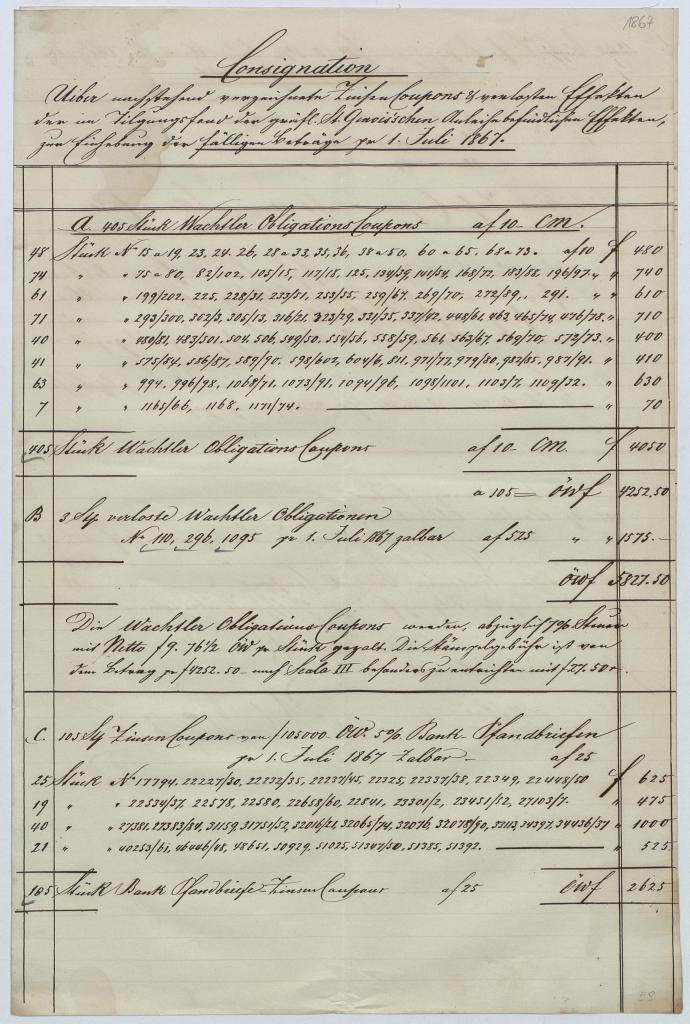 1867
Consignation
Uiber nachstehend verzeichnete Zinsen Coupons & verlosten Effekten
der im Tilgungsfond der gräfl. St. Genois'schen Anleihe befindlichen Effekten,
zur Einhebung der fälligen Beträge pr 1. Juli 1867.
A. 405 Stück Wachtler Obligations Coupons af 10 - CM.
48 Stück No 15 a 19, 23, 24. 26, 28 a 33, 35, 36, 38 a 50, 60 a 65. 68 a 73. af 10 f 480
74 " " 75 a 80, 82/102, 105/15, 117/18, 125, 134/39, 141/54, 168/72, 183/88, 196/97. " " 740
61 " " 199/202, 225, 228/31, 233/51, 253/55, 259/67, 269/70, 272/89, 291. " " 610
71 " " 293/300, 302/3, 305/13, 316/21, 323/29, 331/35, 337/42, 448/61, 463, 465/74, 476/78. " 710
40 " " 480/81, 483/501, 504, 506, 549/50, 554/56, 558/59, 561, 563/67, 569/70, 572/73. " 400
41 " " 575/84, 586/87, 589/90. 598/602, 604/6, 811, 971/77, 979/80, 982/85, 987/91. " 410
63 " " 994, 996/98, 1068/71, 1073/91, 1094/96, 1098/1101, 1103/7, 1109/32. " 630
7 " " 1165/66, 1168. 1171/74. " 70
405 Stück Wachtler Obligations Coupons af 10 - CM. f 4050
a 105 = ÖWf 4252.50
B 3 St verloste Wachtler Obligationen
No 110, 296, 1095 pr 1. Juli 1867 zalbar af 525 " " 1575.-
ÖWf 5827.50
Die Wachtler Obligations Coupons werden, abzüglich 7% Steuer
mit Netto f 9. 76 1/2 ÖW pr Stück gezalt. Die Stämpelgebühr ist von
dem Betrag pr f 4252.50 - nach Scala III besonders zu entrichten mit f 27.50 x.
C. 105 St Zinsen Coupons von f 105000 - ÖW. 5% Bank - Pfandbriefen
pr 1. Juli 1867 zalbar - af 25
25 Stück No 17794. 22227/30, 22232/35, 22237/45, 22325, 22337/38, 22349, 22448/50 f 625
19 " " 22534/37, 22578, 22580, 22658/60, 22841, 23301/2, 23451/52, 27103/7. " 475
40 " " 27381, 27383/84, 31159, 31751/52, 32016/21, 32065/74, 32076, 32078/90, 32113, 34397, 34436/37 " 1000
21 " " 40253/61, 46446/48, 48651, 50929, 51025, 51347/50, 51385, 51392. " 525
105 Stück Bank Pfandbriefe - Zinsen Coupons af 25 ÖWf 2625
59